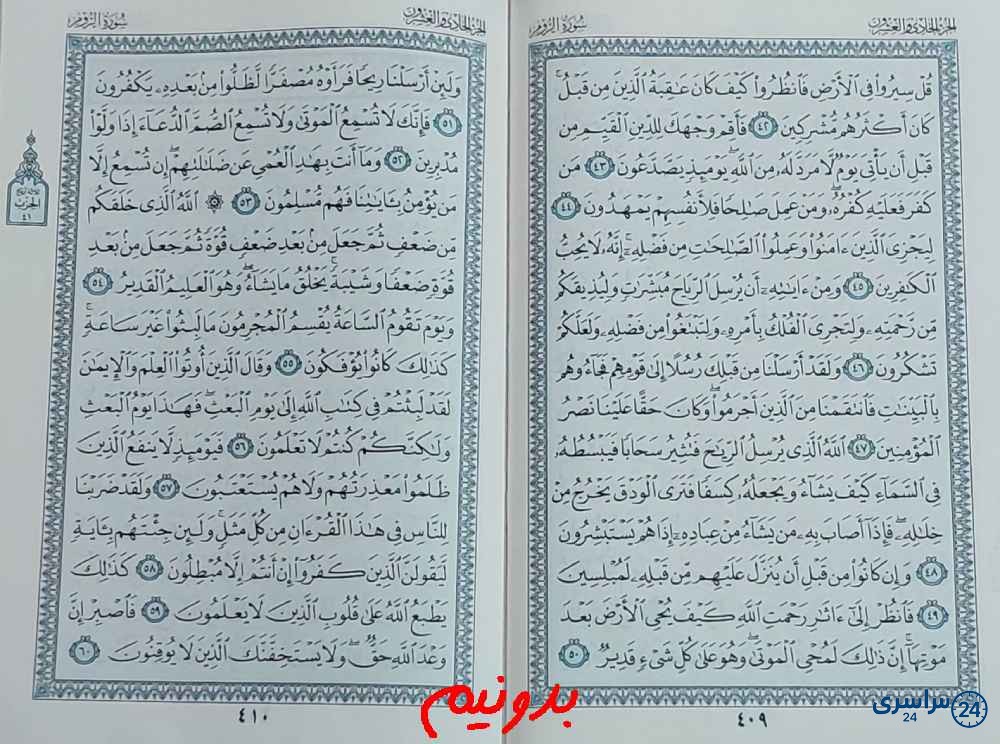 الجزء الحادي والعشرون
سورة الروم
قُلْ سِيرُوا۟ فِى ٱلْأَرْضِ فَٱنظُرُوا۟ كَيْفَ كَانَ عَـٰقِبَةُ ٱلَّذِينَ مِن قَبْلُ ۚ
كَانَ أَكْثَرُهُم مُّشْرِكِينَ ٤٢ فَأَقِمْ وَجْهَكَ لِلدِّينِ ٱلْقَيِّمِ مِن
قَبْلِ أَن يَأْتِىَ يَوْمٌ لَّا مَرَدَّ لَهُۥ مِنَ ٱللَّهِ ۖ يَوْمَئِذٍ يَصَّدَّعُونَ ٤٣ مَن
كَفَرَ فَعَلَيْهِ كُفْرُهُۥ ۖ وَمَنْ عَمِلَ صَـٰلِحًا فَلِأَنفُسِهِمْ يَمْهَدُونَ ٤٤
لِيَجْزِىَ ٱلَّذِينَ ءَامَنُوا۟ وَعَمِلُوا۟ ٱلصَّـٰلِحَـٰتِ مِن فَضْلِهِۦٓ ۚ إِنَّهُۥ لَا يُحِبُّ
ٱلْكَـٰفِرِينَ ٤٥ وَمِنْ ءَايَـٰتِهِۦٓ أَن يُرْسِلَ ٱلرِّيَاحَ مُبَشِّرَٰتٍ وَلِيُذِيقَكُم
مِّن رَّحْمَتِهِۦ وَلِتَجْرِىَ ٱلْفُلْكُ بِأَمْرِهِۦ وَلِتَبْتَغُوا۟ مِن فَضْلِهِۦ وَلَعَلَّكُمْ
تَشْكُرُونَ ٤٦ وَلَقَدْ أَرْسَلْنَا مِن قَبْلِكَ رُسُلًا إِلَىٰ قَوْمِهِمْ فَجَآءُوهُم
بِٱلْبَيِّنَـٰتِ فَٱنتَقَمْنَا مِنَ ٱلَّذِينَ أَجْرَمُوا۟ ۖ وَكَانَ حَقًّا عَلَيْنَا نَصْرُ
ٱلْمُؤْمِنِينَ ٤٧ ٱللَّهُ ٱلَّذِى يُرْسِلُ ٱلرِّيَـٰحَ فَتُثِيرُ سَحَابًا فَيَبْسُطُهُۥ
فِى ٱلسَّمَآءِ كَيْفَ يَشَآءُ وَيَجْعَلُهُۥ كِسَفًا فَتَرَى ٱلْوَدْقَ يَخْرُجُ مِنْ
خِلَـٰلِهِۦ ۖ فَإِذَآ أَصَابَ بِهِۦ مَن يَشَآءُ مِنْ عِبَادِهِۦٓ إِذَا هُمْ يَسْتَبْشِرُونَ
٤٨ وَإِن كَانُوا۟ مِن قَبْلِ أَن يُنَزَّلَ عَلَيْهِم مِّن قَبْلِهِۦ لَمُبْلِسِينَ
٤٩ فَٱنظُرْ إِلَىٰٓ ءَاثَـٰرِ رَحْمَتِ ٱللَّهِ كَيْفَ يُحْىِ ٱلْأَرْضَ بَعْدَ
مَوْتِهَآ ۚ إِنَّ ذَٰلِكَ لَمُحْىِ ٱلْمَوْتَىٰ ۖ وَهُوَ عَلَىٰ كُلِّ شَىْءٍ قَدِيرٌ ٥٠
٤٠٩
الجزء الحادي والعشرون
سورة الروم
وَلَئِنْ أَرْسَلْنَا رِيحًا فَرَأَوْهُ مُصْفَرًّا لَّظَلُّوا۟ مِنۢ بَعْدِهِۦ يَكْفُرُونَ
٥١ فَإِنَّكَ لَا تُسْمِعُ ٱلْمَوْتَىٰ وَلَا تُسْمِعُ ٱلصُّمَّ ٱلدُّعَآءَ إِذَا وَلَّوْا۟
مُدْبِرِينَ ٥٢ وَمَآ أَنتَ بِهَـٰدِ ٱلْعُمْىِ عَن ضَلَـٰلَتِهِمْ ۖ إِن تُسْمِعُ إِلَّا
مَن يُؤْمِنُ بِـَٔايَـٰتِنَا فَهُم مُّسْلِمُونَ ٥٣ ۞ ٱللَّهُ ٱلَّذِى خَلَقَكُم
مِّن ضَعْفٍ ثُمَّ جَعَلَ مِنۢ بَعْدِ ضَعْفٍ قُوَّةً ثُمَّ جَعَلَ مِنۢ بَعْدِ
قُوَّةٍ ضَعْفًا وَشَيْبَةً ۚ يَخْلُقُ مَا يَشَآءُ ۖ وَهُوَ ٱلْعَلِيمُ ٱلْقَدِيرُ ٥٤
وَيَوْمَ تَقُومُ ٱلسَّاعَةُ يُقْسِمُ ٱلْمُجْرِمُونَ مَا لَبِثُوا۟ غَيْرَ سَاعَةٍ ۚ
كَذَٰلِكَ كَانُوا۟ يُؤْفَكُونَ ٥٥ وَقَالَ ٱلَّذِينَ أُوتُوا۟ ٱلْعِلْمَ وَٱلْإِيمَـٰنَ
لَقَدْ لَبِثْتُمْ فِى كِتَـٰبِ ٱللَّهِ إِلَىٰ يَوْمِ ٱلْبَعْثِ ۖ فَهَـٰذَا يَوْمُ ٱلْبَعْثِ
وَلَـٰكِنَّكُمْ كُنتُمْ لَا تَعْلَمُونَ ٥٦ فَيَوْمَئِذٍ لَّا يَنفَعُ ٱلَّذِينَ
ظَلَمُوا۟ مَعْذِرَتُهُمْ وَلَا هُمْ يُسْتَعْتَبُونَ ٥٧ وَلَقَدْ ضَرَبْنَا
لِلنَّاسِ فِى هَـٰذَا ٱلْقُرْءَانِ مِن كُلِّ مَثَلٍ ۚ وَلَئِن جِئْتَهُم بِـَٔايَةٍ
لَّيَقُولَنَّ ٱلَّذِينَ كَفَرُوٓا۟ إِنْ أَنتُمْ إِلَّا مُبْطِلُونَ ٥٨ كَذَٰلِكَ
يَطْبَعُ ٱللَّهُ عَلَىٰ قُلُوبِ ٱلَّذِينَ لَا يَعْلَمُونَ ٥٩ فَٱصْبِرْ إِنَّ
وَعْدَ ٱللَّهِ حَقٌّ ۖ وَلَا يَسْتَخِفَّنَّكَ ٱلَّذِينَ لَا يُوقِنُونَ ٦٠
٤١٠
الحزب
٤١
بدونیم
سراسری
24
24